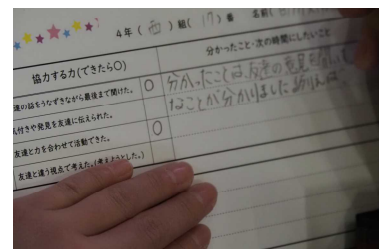 4年(西)組(17)番 名前(
協力する力(できたら○)
分かったこと・次の時間にしたいこと
達の話をうなずきながら最後まで聞けた。
○
分かったことは、友達の意見を聞い
気付きや発見を友達に伝えられた。
なことが分かりました
友達と力を合わせて活動できた。
○
友達と違う視点で考えた。(考えようとした。)